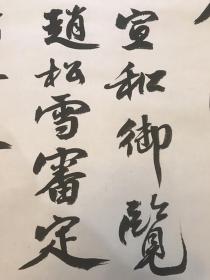 宣和御覽
趙松雪審定